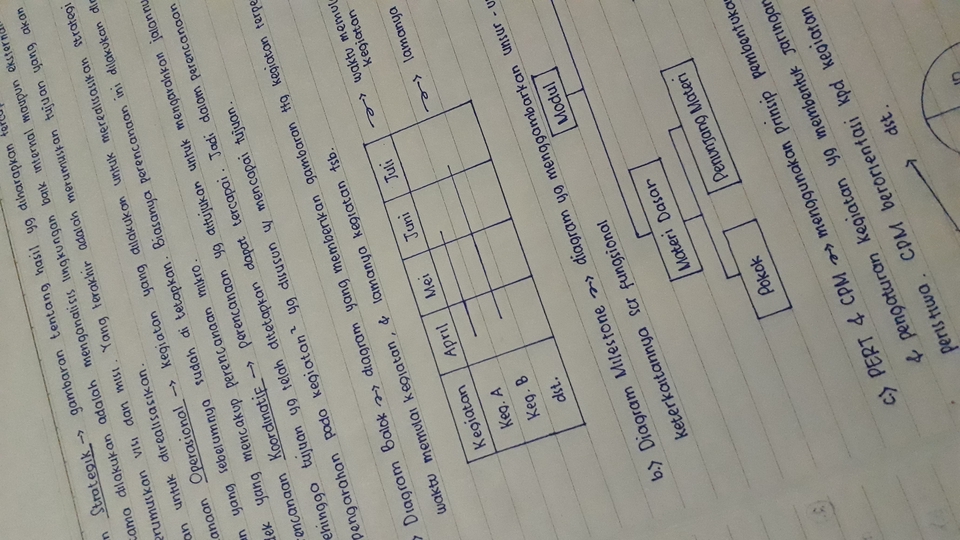 Strategik → gambaran tentang hasil yg diharapkan
dilakukan adalah menganalisis lingkungan baik internal maupun
visi dan misi. Yang terakhir adalah merumuskan tujuan yang akan
untuk direalisasikan.
Operasional → kegiatan yang dilakukan untuk merealisasikan strategi
yang sebelumnya sudah di tetapkan. Biasanya perencanaan ini dilakukan
yang mencakup perencanaan mikro.
Koordinatif → Perencanaan yg ditujukan untuk mengarahkan
tujuan yg telah ditetapkan dapat tercapai. Jadi dalam perencanaan
pada kegiatan² yg disusun u/ mencapai tujuan.
Diagram Balok ⇝ diagram yang memberikan gambaran ttg kegiatan
waktu memulai kegiatan, & lamanya kegiatan tsb.
Kegiatan April Mei Juni Juli
Keg. A
Keg. B
dst.
→ waktu
kegiatan
→ lamanya
b) Diagram Milestone ⇝ diagram yg menggambarkan unsur
keterkaitannya scr fungsional
Modul
Materi Dasar
Pokok
Penunjang Materi
c) PERT & CPM ⇝ menggunakan Prinsip Pembentukan
& Pengaturan kegiatan yg membentuk jaringan
Peristiwa. CPM berorientasi kpd kegiatan
dst.